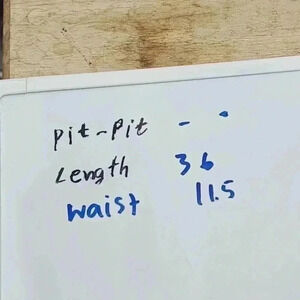 Pit-Pit - .
Length 36
Waist 11.5